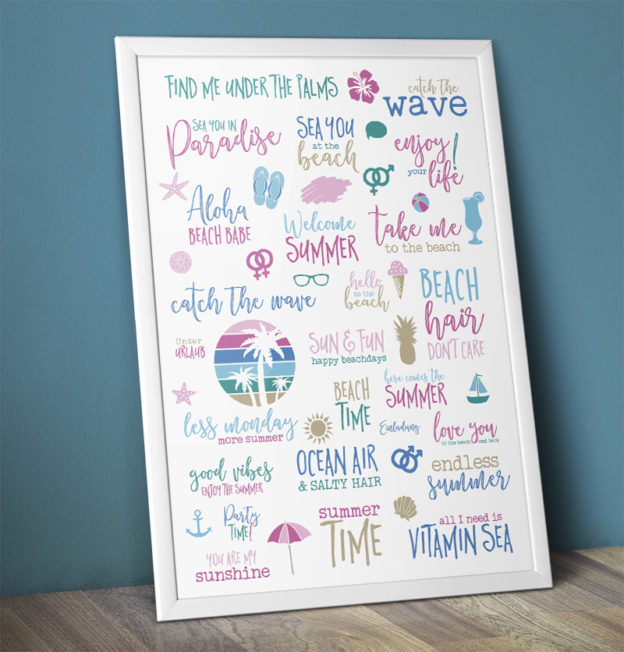 FIND ME UNDER THE PALMS
catch the
wave
SEA YOU IN
Paradise
SEA YOU
at the
beach
enjoy
your life!
Aloha
BEACH BABE
Welcome
SUMMER
take me
to the beach
catch The wave
hello
to the
beach
BEACH
hair
DON'T CARE
Unser
URLAUB
SUN & FUN
happy beachdays
BEACH
TIME
here comes the
SUMMER
less monday
more summer
Einladung
love you
to the beach and back
good vibes
ENJOY THE SUMMER
OCEAN AIR
& SALTY HAIR
endless
summer
Party
TIME!
YOU ARE MY
sunshine
summer
TIME
all I need is
VITAMIN SEA